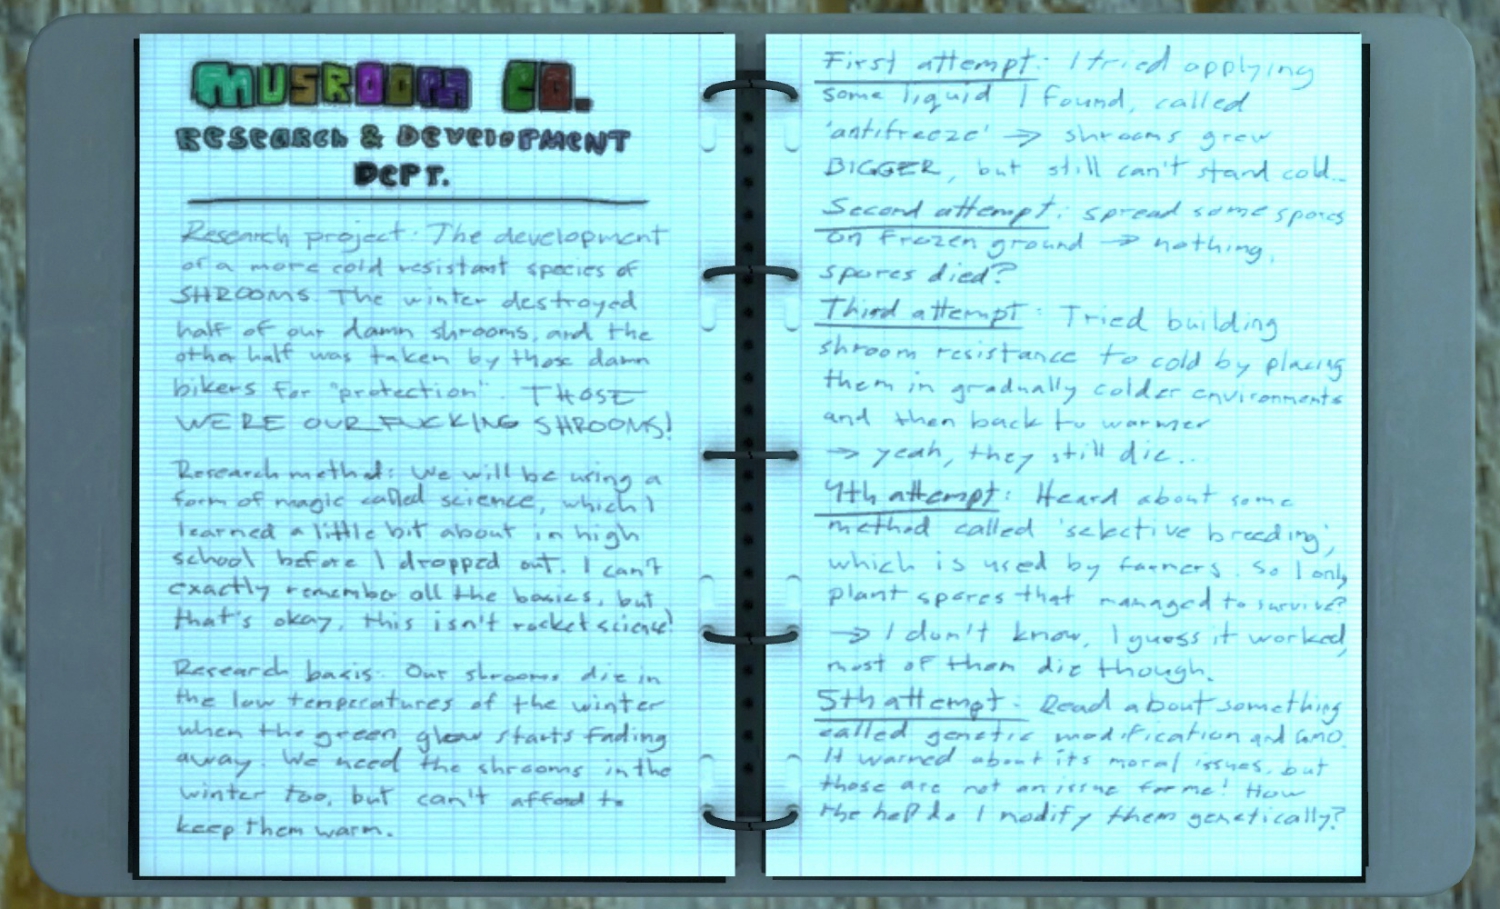 MUSROOM CO.
RESEARCH & DEVELOPMENT
DEPT.
Research project: The development
of a more cold resistant species of
SHROOMS. The winter destroyed
half of our damn shrooms, and the
other half was taken by those damn
bikers for "protection". THOSE
WERE OUR FUCKING SHROOMS!
Research method: We will be using a
form of magic called science, which I
learned a little bit about in high
school before I dropped out. I can't
exactly remember all the basics, but
that's okay, this isn't rocket science!
Research basis: Our shrooms die in
the low temperatures of the winter
when the green glow starts fading
away. We need the shrooms in the
winter too, but can't afford to
keep them warm.
First attempt: I tried applying
some liquid I found, called
'antifreeze' → shrooms grew
BIGGER, but still can't stand cold...
Second attempt: spread some spores
on frozen ground → nothing,
spores died?
Third attempt: Tried building
shroom resistance to cold by placing
them in gradually colder environments
and then back to warmer
→ yeah, they still die...
4th attempt: Heard about some
method called 'selective breeding',
which is used by farmers. So I only
plant spores that managed to survive?
→ I don't know, I guess it worked,
most of them die though.
5th attempt: Read about something
called genetic modification and GMO.
It warned about its moral issues, but
those are not an issue for me! How
the hell do I modify them genetically?